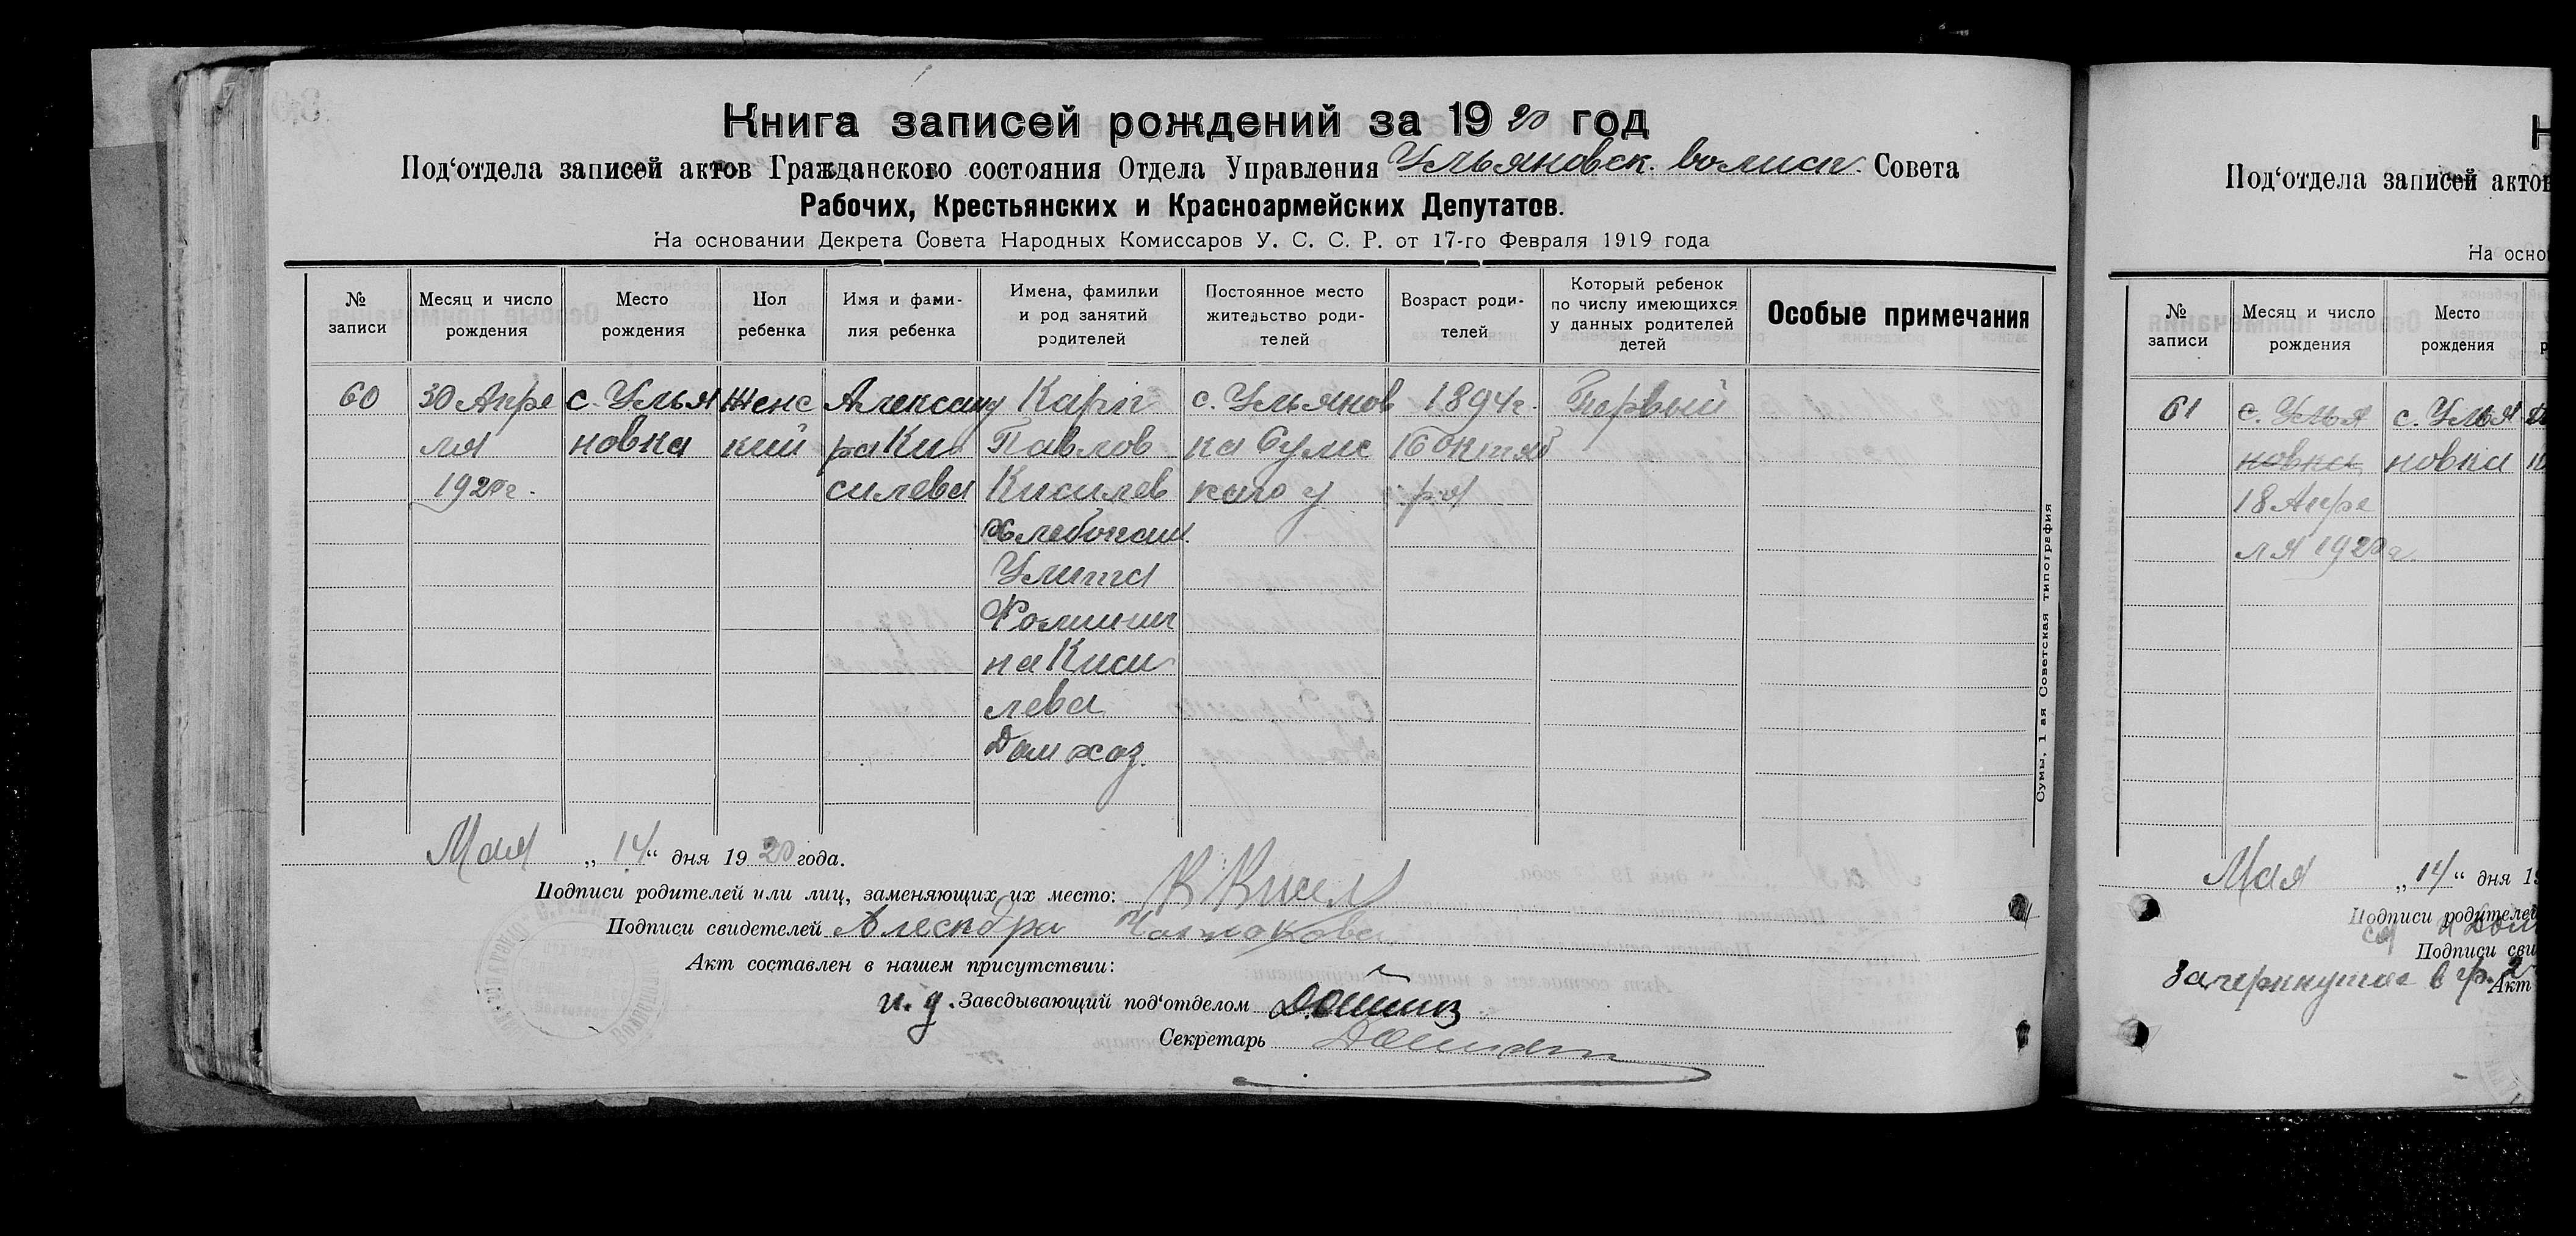 Книга записей рождений за 1920 год
Под‘отдела записей актов Гражданского состояния Отдела Управления Ульяновск. волисп. Совета
Рабочих, Крестьянских и Красноармейских Депутатов.
На основании Декрета Совета Народных Комиссаров У. С. С. Р. от 17-го Февраля 1919 года
№ записи
Месяц и число рождения
Место рождения
Пол ребенка
Имя и фами-
лия ребенка
Имена, фамилии
и род занятий
родителей
Постоянное место
жительство роди-
телей
Возраст роди-
телей
Который ребенок
по числу имеющихся
у данных родителей
детей
Особые примечания
60
30 Апре
ля
1920 г.
с. Улья
новка
Женс
кий
Александ
ра Ки
силева
Карп
Павлов
Кисилев
хлебопаш.
Улита
Фомини
на Киси
лева
Дом хоз.
с. Ульянов
ка Сумс
каго у
1894 г.
16 октяб
ря
Первый
Сумы, 1 ая Советская типография
Мая „14“ дня 1920 года.
Подписи родителей или лиц, заменяющих их место: К Кисел
Подписи свидетелей Алескдра
Акт составлен в нашем присутствии:
и. д. Заведывающий под‘отделом
Секретарь
Под‘отдела записей актов
На осно
№ записи
Месяц и число
рождения
Место
рождения
61
с. Улья
новка
18 Апре
ля 1920 г.
с. Улья
новка
Мая „14“ дня 19
Подписи родителей
Подписи сви
Зачеркнутое в гр. 2
Акт